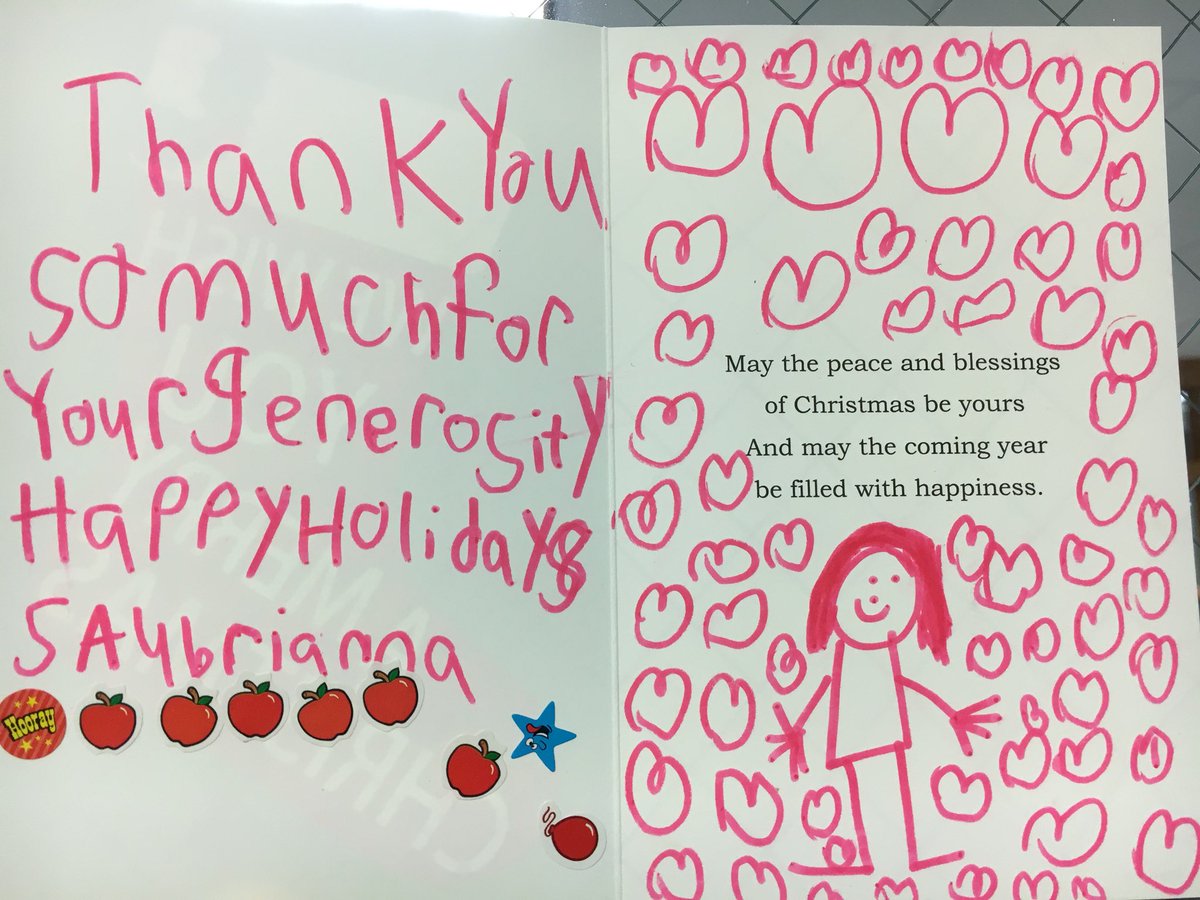 Thank You
so much for
Your generosity
Happy Holidays
SAybrianna
Hooray
May the peace and blessings
of Christmas be yours
And may the coming year
be filled with happiness.